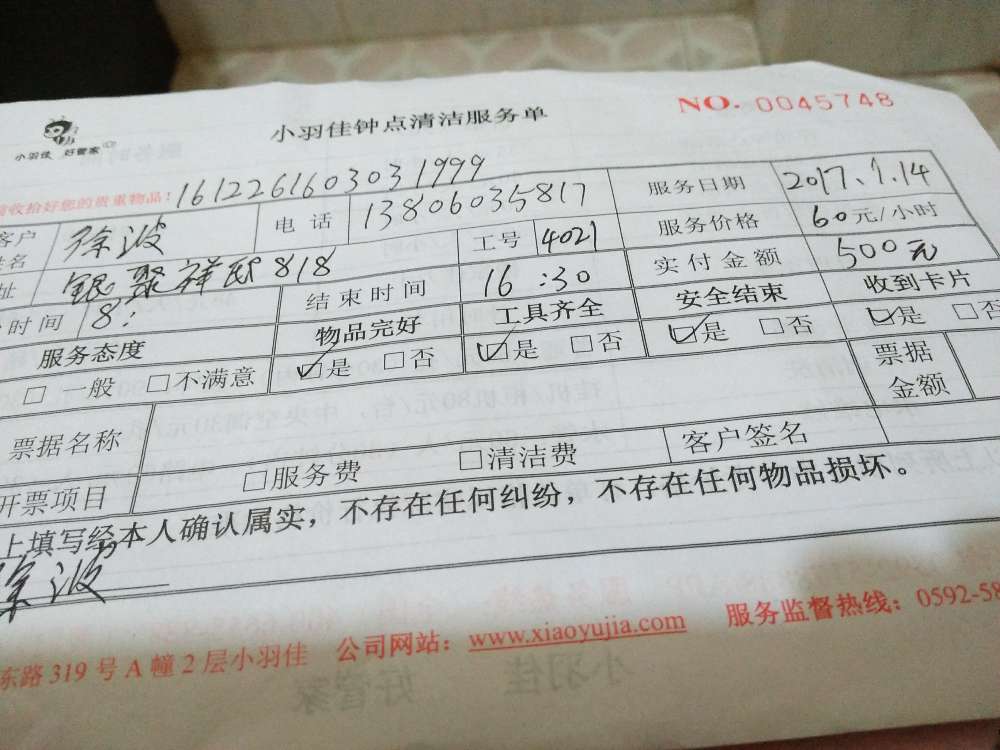 小羽佳 好管家
小羽佳钟点清洁服务单
NO. 0045748
请收拾好您的贵重物品！1612261603031999
客户姓名 徐波 电话 13806035817 服务日期 2017.1.14
址 银聚祥邸818 工号 4021 服务价格 60元/小时
时间 8: 结束时间 16:30 实付金额 500元
服务态度 物品完好 工具齐全 安全结束 收到卡片
□一般 □不满意 ☑是 □否 ☑是 □否 ☑是 □否 ☑是 □否
票据名称 票据金额
开票项目 □服务费 □清洁费 客户签名
上填写经本人确认属实，不存在任何纠纷，不存在任何物品损坏。
徐波
东路319号A幢2层小羽佳 公司网站：www.xiaoyujia.com 服务监督热线：0592-58
小羽佳 好管家